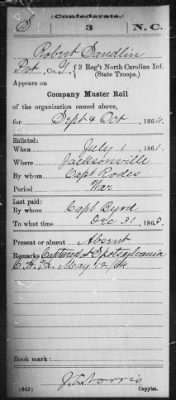 S Confederate.
3 N.C.
Robert Sandlin
Pvt, Co. G, 3 Reg't North Carolina Inf.
(State Troops.)
Appears on
Company Muster Roll
of the organization named above,
for Sept & Oct, 1864.
Enlisted:
When July 1, 1861.
Where Jacksonville
By whom Capt Rodes
Period War
Last paid:
By whom Capt Byrd
To what time Dec 31, 1863.
Present or absent Absent
Remarks: Captured at Spottsylvania
C. H. Va. May 12/64
Book mark:
(642) Copyist.